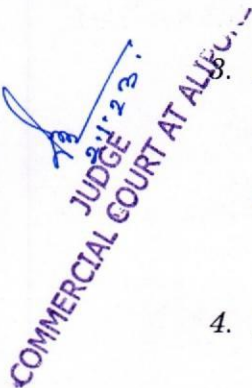 3.
2.1.23.
JUDGE
COMMERCIAL COURT AT ALIPORE
4.